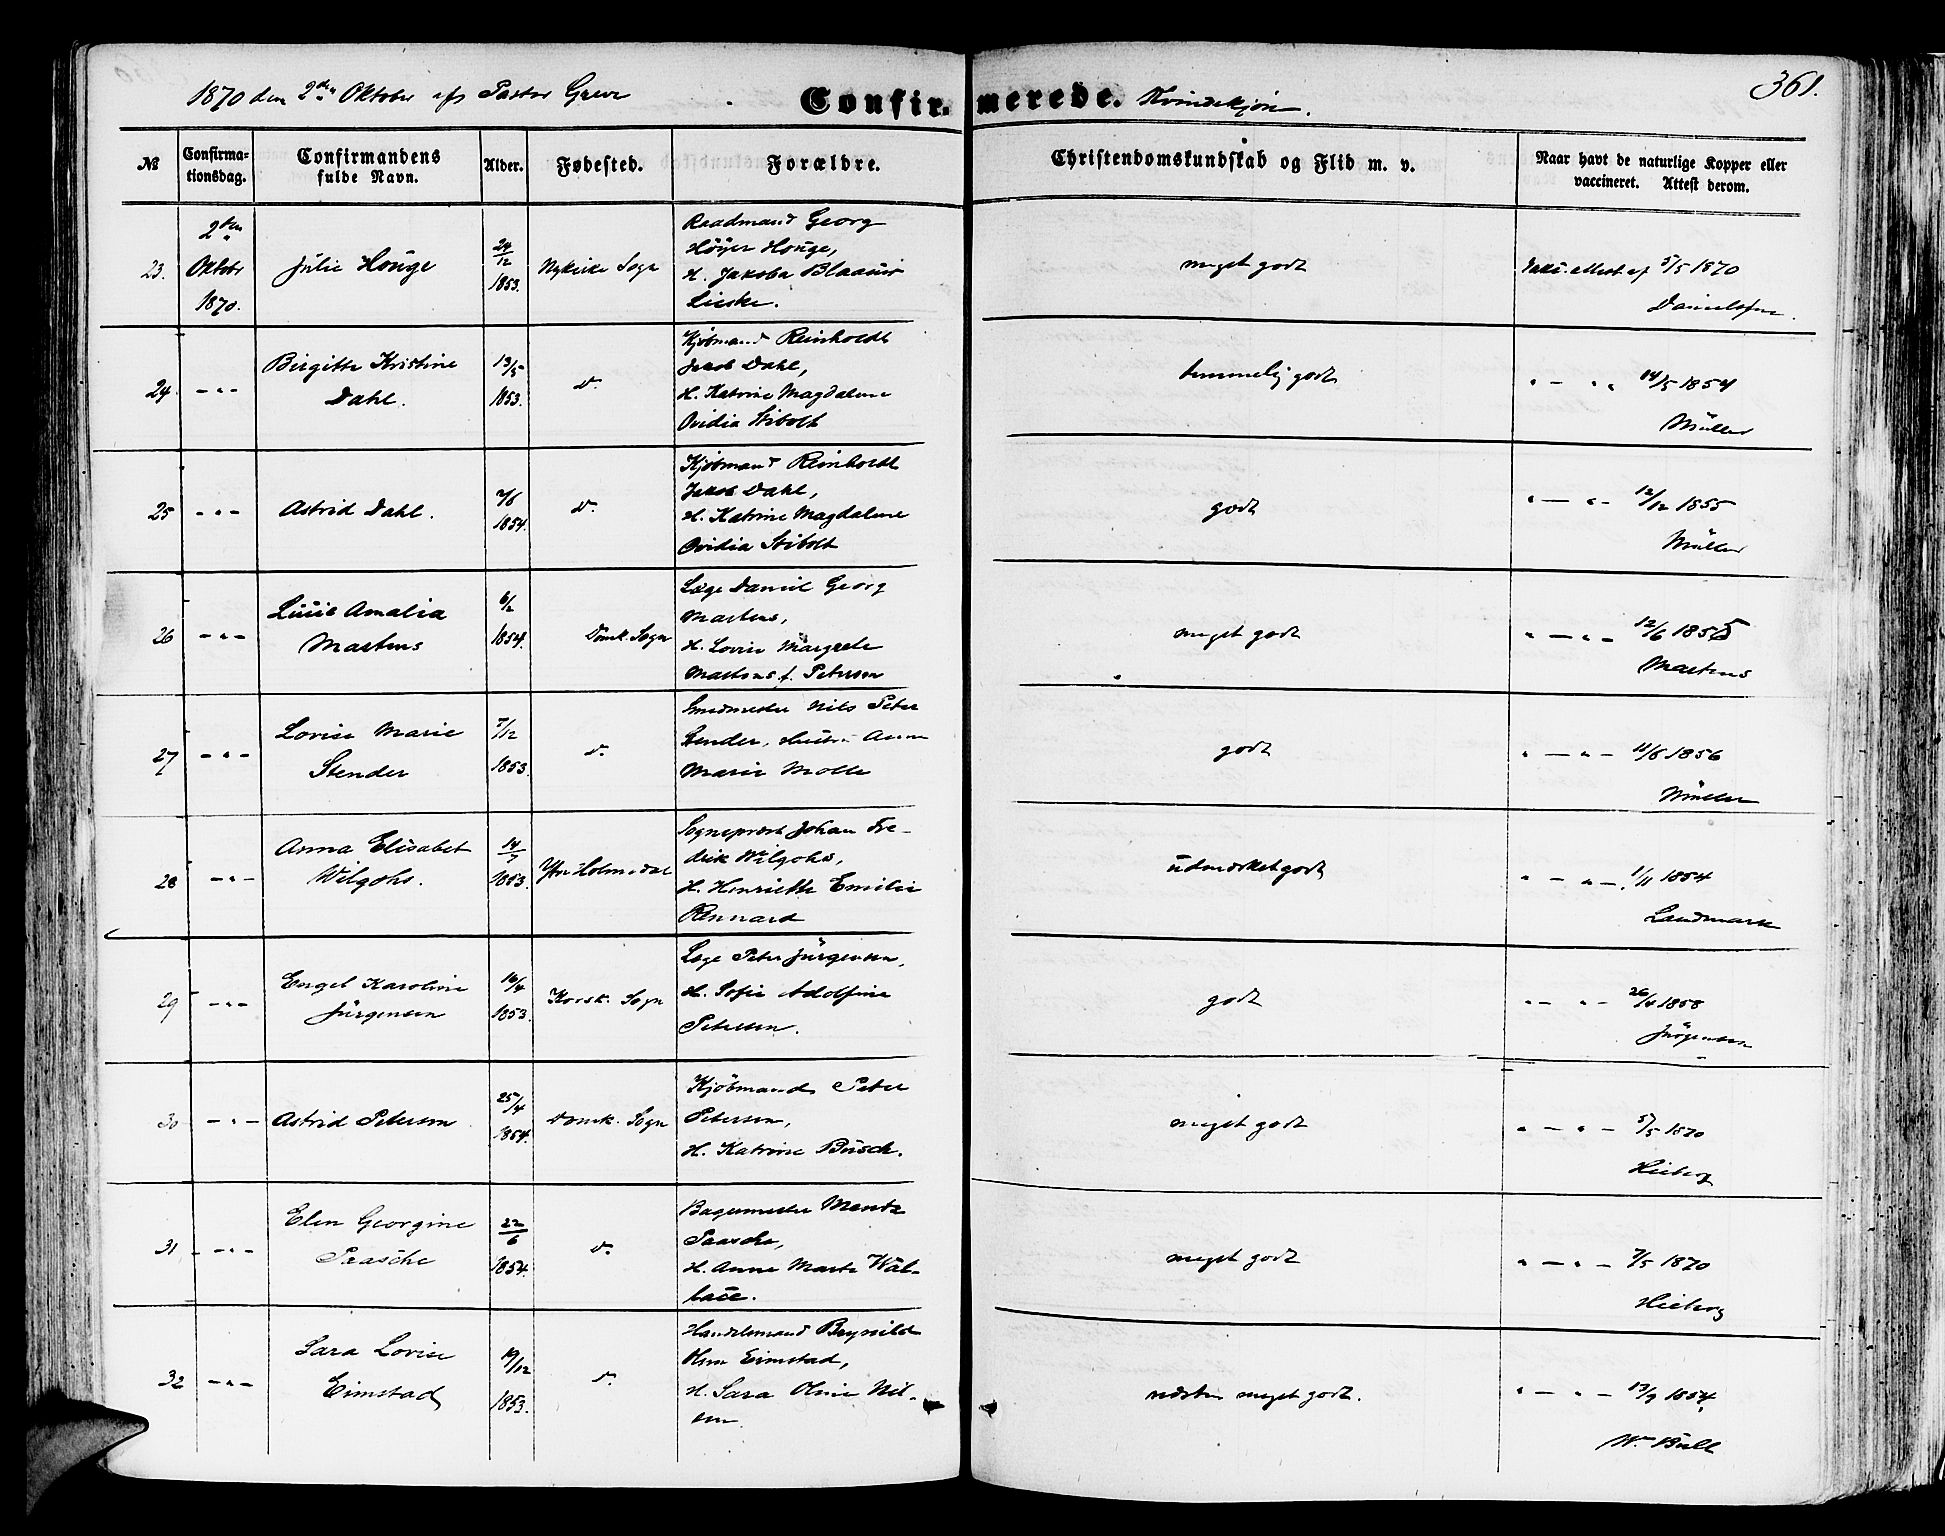 1870 den 2den Oktober af Pastor Greve
Confirmerede. Kvindekjøn.
361.
№
Confirma-
tionsdag.
Confirmandens
fulde Navn.
Alder.
Fødested.
Forældre.
Christendomskundskab og Flid m. v.
Naar havt de naturlige Kopper eller
vaccineret. Attest derom.
23.
2den
Oktobr
1870.
Julie Houge
24/12
1853.
Nykirke Sogn
Raadmand Georg
Høyer Houge,
H. Jakoba Blaauw
Lieske.
meget godt
Vakc. attest af 5/5 1870
Danielsen.
24
- " -
Birgitte Kristine
Dahl.
13/5
1853.
do
Kjøbmand Reinholdt
Jakob Dahl,
H. Katrine Magdalene
Ovidia Stibolt
temmelig godt
" - " " 14/5 1854
Müller
25
- " -
Astrid Dahl.
1854.
do
Kjøbmand Reinholdt
Jakob Dahl,
H. Katrine Magdalene
Ovidia Stibolt
godt
" - " - 12/12 1855
Müller
26
- " -
Amalia
Martens
6/2
1854.
Domk. Sogn
Læge Daniel Georg
Martens,
H. Lovise Margrete
Martens f. Petersen
meget godt
" - " - 12/6 1855
Martens
27
- " -
Lovise Marie
Stender
7/12
1853.
do
Smedmester Nils Peter
Stender, Hustru Anne
Marie Molle
godt
" - " - 11/8 1856
Müller
28
- " -
Anna Elisabet
Wilgohs.
14/7
1853.
Ytre Holmedal
Sogneprest Johan Fre-
drik Wilgohs,
H. Henriette Emilie
Rennard
udmærket godt
" - " - 1/11 1854
Landmark
29
- " -
Engel Karoline
Jürgensen
16/4
1853.
Korsk. Sogn
Læge Peter Jürgensen,
H. Sofie Adolfine
Petersen.
godt
" - " - 1858
Jürgensen
30
- " -
Astrid Petersen
25/4
1854.
Domk. Sogn
Kjöbmand Peter
Petersen,
H. Katrine Büsch.
meget godt
" - " - 5/5 1870
Heiberg
31
- " -
Elen Georgine
Paasche
22/6
1854.
do
Bagermester Mentz
Paasche,
H. Anne Marte Wal-
lace.
meget godt
" - " - 7/5 1870
Heiberg
32
- " -
Sara Lovise
Eimstad
19/12
1853.
do
Handelsmand Brynild
Olsen Eimstad,
H. Sara Oline Nil-
sen
næsten meget godt.
" - " - 13/9 1854
Wm Bull